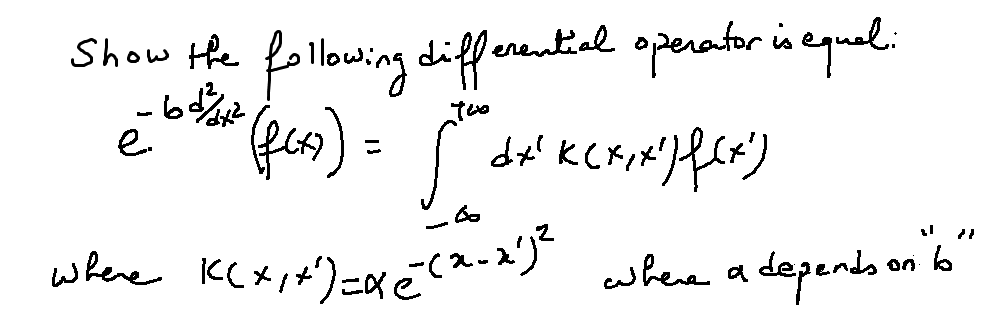 Show the following differential operator is equal:
e^{-b d²/dx²} (f(x)) = ∫_{-∞}^{+∞} dx' K(x,x') f(x')
where K(x,x') = α e^{-(x-x')²} where α depends on "b"